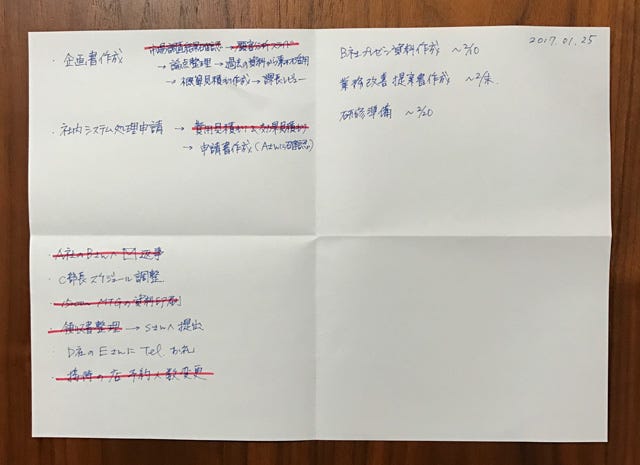 2017.01.25
・企画書作成
市場調査結果確認 → 顧客分析スライド
→ 論点整理 → 過去の資料から素材活用
→ 概算見積もり作成 → 課長レビュー
・社内システム処理申請 → 費用見積もり
→ 申請書作成(Aさんに確認)
B社プレゼン資料作成 〜2/10
業務改善提案書作成 〜2/末
研修準備 〜2/20
・A社のBさんへ 返事
・C部長スケジュール調整
MTGの資料印刷
・領収書整理 → Sさんへ提出
・D社のEさんにTel. お礼
・接待の店 予約人数変更